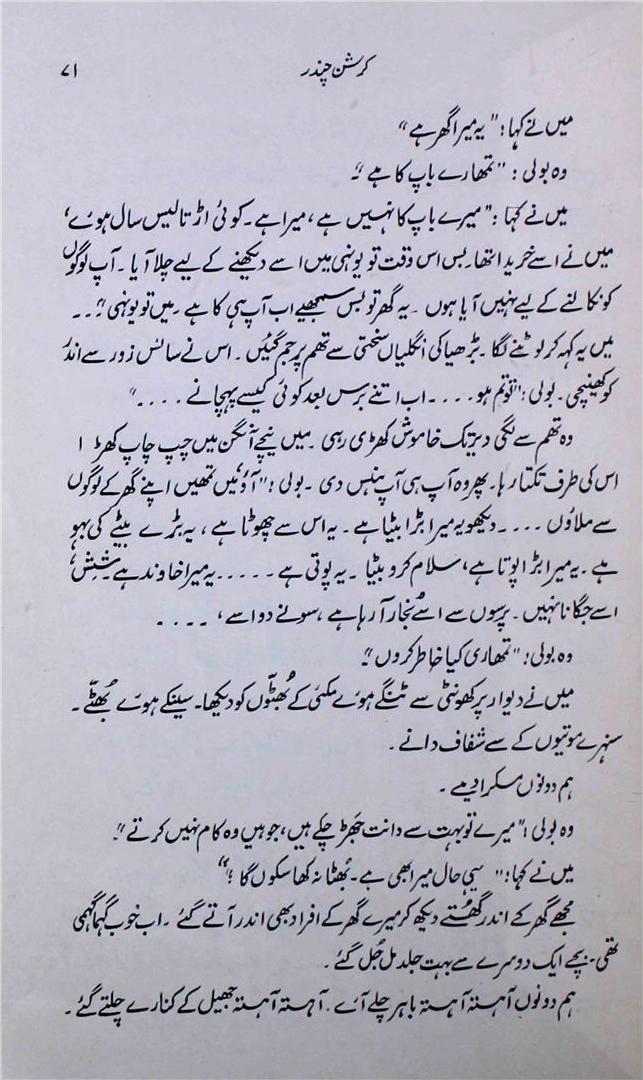 کرشن چندر ۷۱
میں نے کہا: "یہ میرا گھر ہے"
وہ بولی: "تمھارے باپ کا ہے"۔
میں نے کہا: "میرے باپ کا نہیں ہے، میرا ہے۔ کوئی اڑتالیس سال ہوئے،
میں نے اسے خریدا تھا۔ بس اس وقت تو یونہی میں اسے دیکھنے کے لیے چلا آیا۔ آپ لوگوں
کو نکالنے کے لیے نہیں آیا ہوں۔ یہ گھر تو بس سمجھیے اب آپ ہی کا ہے۔ میں تو یونہی"۔۔۔
میں یہ کہہ کر لوٹنے لگا۔ بڑھیا کی انگلیاں سختی سے تھم پر جم گئیں۔ اس نے سانس زور سے اندر
کو کھینچی۔ بولی: "تو تم ہو ۔۔۔۔ اب اتنے برس بعد کوئی کیسے پہچانے ۔۔۔۔"
وہ تھم سے لگی دیر تک خاموش کھڑی رہی۔ میں نیچے آنگن میں چپ چاپ کھڑا
اس کی طرف تکتا رہا۔ پھر وہ آپ ہی آپ ہنس دی۔ بولی: "آؤ میں تمھیں اپنے گھر کے لوگوں
سے ملاؤں ۔۔۔۔ دیکھو یہ میرا بڑا بیٹا ہے۔ یہ اس سے چھوٹا ہے، یہ بڑے بیٹے کی بہو
ہے۔ یہ میرا بڑا پوتا ہے، سلام کرو بیٹا۔ یہ پوتی ہے ۔۔۔۔۔ یہ میرا خاوند ہے۔ شِش،
اسے جگانا نہیں۔ پرسوں سے اسے بُخار آ رہا ہے، سونے دو اسے، ۔۔۔۔
وہ بولی: "تمھاری کیا خاطر کروں"۔
میں نے دیوار پر کھونٹی سے ٹنگے ہوئے مکئی کے بُھٹّوں کو دیکھا۔ سینکے ہوئے بُھٹّے۔
سنہرے موتیوں کے سے شفاف دانے۔
ہم دونوں مسکرا دیے۔
وہ بولی: "میرے تو بہت سے دانت جھڑ چکے ہیں، جو ہیں وہ کام نہیں کرتے"۔
میں نے کہا: "یہی حال میرا بھی ہے۔ بُھٹا نہ کھا سکوں گا"؛
مجھے گھر کے اندر گھُستے دیکھ کر میرے گھر کے افراد بھی اندر آتے گئے۔ اب خوب گہما گہمی
تھی۔ بچے ایک دوسرے سے بہت جلد مل جُل گئے۔
ہم دونوں آہستہ آہستہ باہر چلے آئے۔ آہستہ آہستہ جھیل کے کنارے چلتے گئے۔